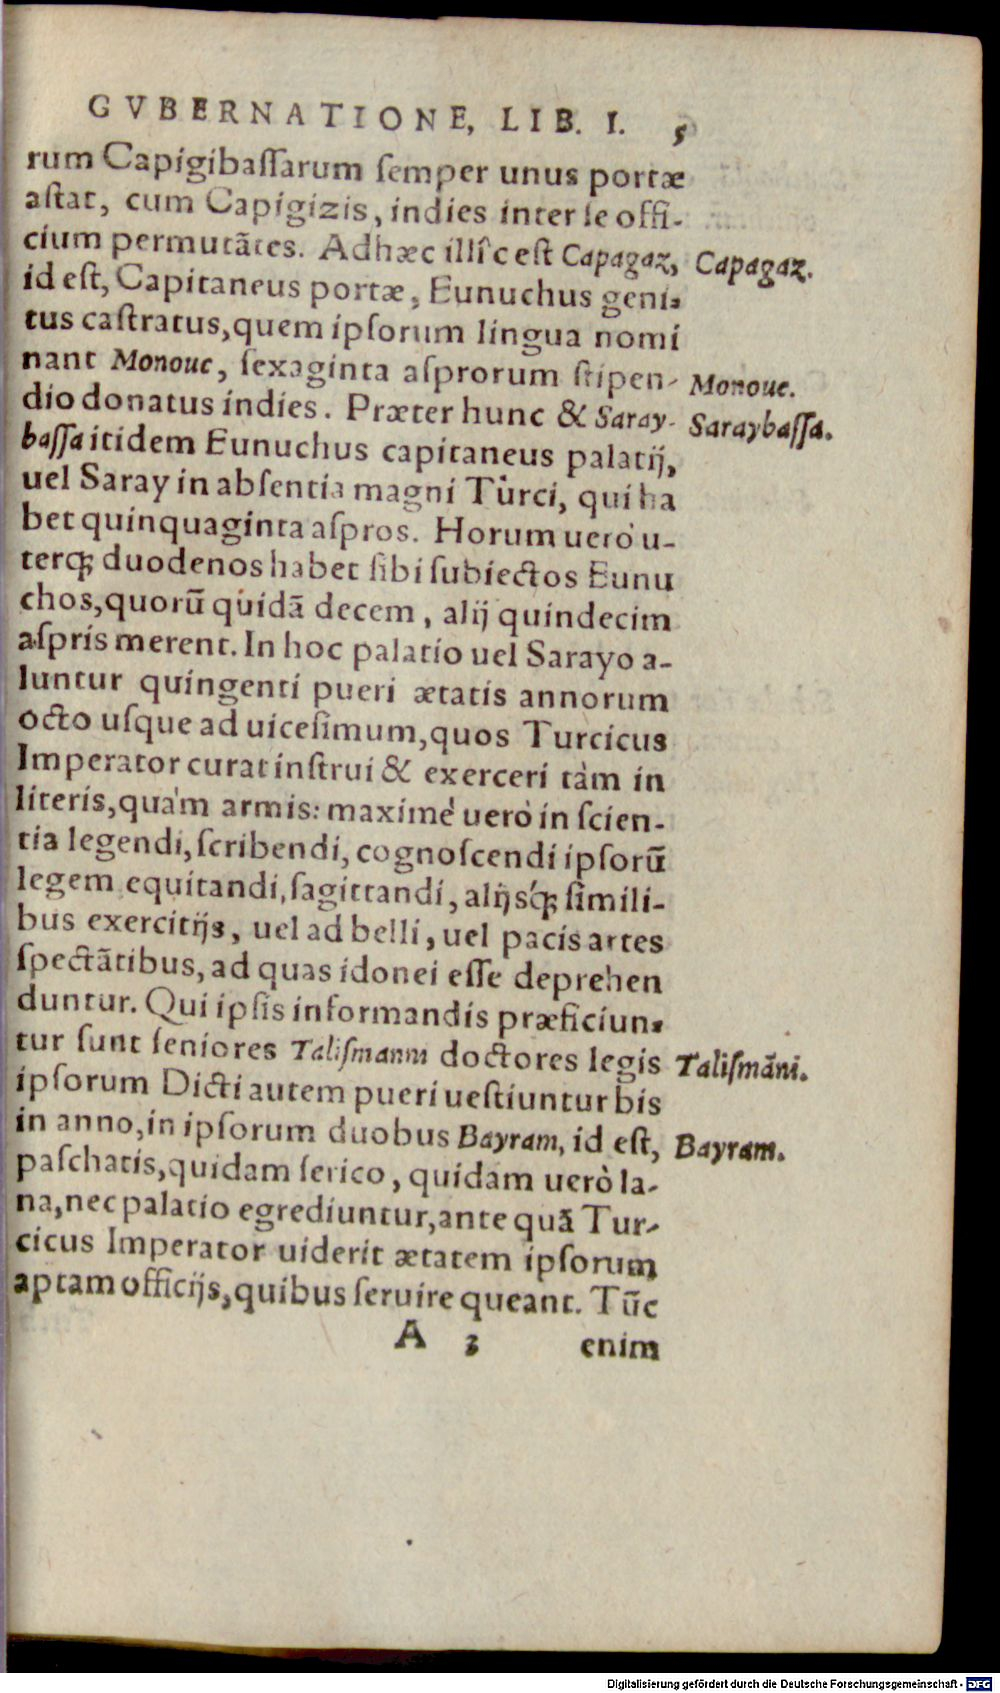 GVBERNATIONE, LIB. I. 5
rum Capigibassarum semper unus portæ
astat, cum Capigizis, indies inter se offi-
cium permutãtes. Adhæc illîc est Capagaz,
Capagaz.
id est, Capitaneus portæ, Eunuchus geni-
tus castratus, quem ipsorum lingua nomi
nant Monouc, sexaginta asprorum stipen-
Monouc.
dio donatus indies. Præter hunc & Saray-
Saraybassa.
bassa itidem Eunuchus capitaneus palatij,
uel Saray in absentia magni Turci, qui ha
bet quinquaginta aspros. Horum uerò u-
terq; duodenos habet sibi subiectos Eunu
chos, quorũ quidã decem, alij quindecim
aspris merent. In hoc palatio uel Sarayo a-
luntur quingenti pueri ætatis annorum
octo usque ad uicesimum, quos Turcicus
Imperator curat instrui & exerceri tàm in
literis, quàm armis: maximè uerò in scien-
tia legendi, scribendi, cognoscendi ipsorũ
legem equitandi, sagittandi, alijsq́; simili-
bus exercitijs, uel ad belli, uel pacis artes
spectãtibus, ad quas idonei esse deprehen
duntur. Qui ipsis informandis præficiun-
tur sunt seniores Talismanni doctores legis
Talismãni.
ipsorum Dicti autem pueri uestiuntur bis
in anno, in ipsorum duobus Bayram, id est,
Bayram.
paschatis, quidam serico, quidam uerò la-
na, nec palatio egrediuntur, ante quã Tur-
cicus Imperator uiderit ætatem ipsorum
aptam officijs, quibus seruire queant. Tũc
A 3 enim
Digitalisierung gefördert durch die Deutsche Forschungsgemeinschaft - DFG